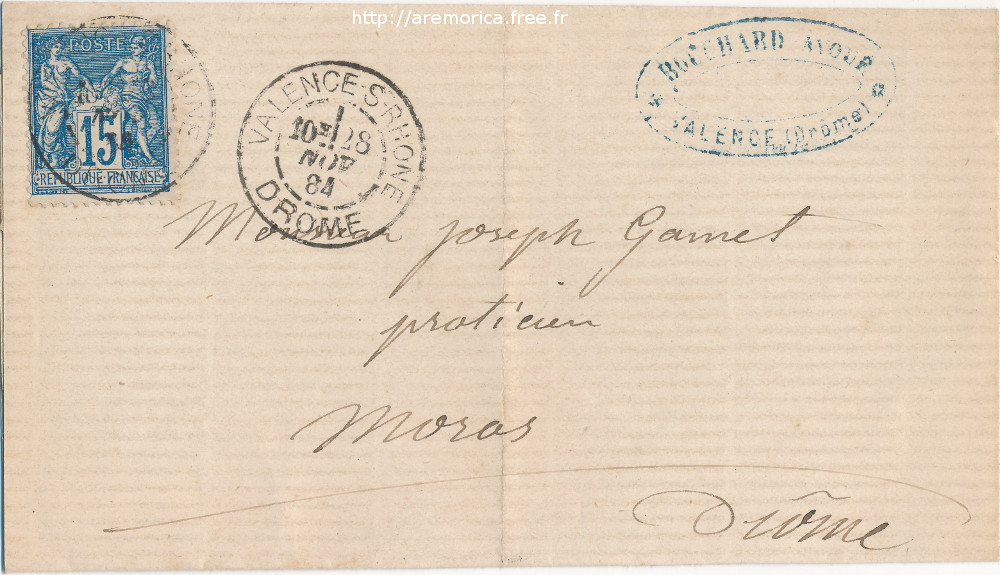 http://aremorica.free.fr
POSTE
15
REPUBLIQUE FRANÇAISE
VALENCE-S-RHONE
10E 28
NOV
84
DROME
BOUCHARD AVOUÉ
VALENCE (Drôme)
Monsieur Joseph Gamet
praticien
Moras
Drôme